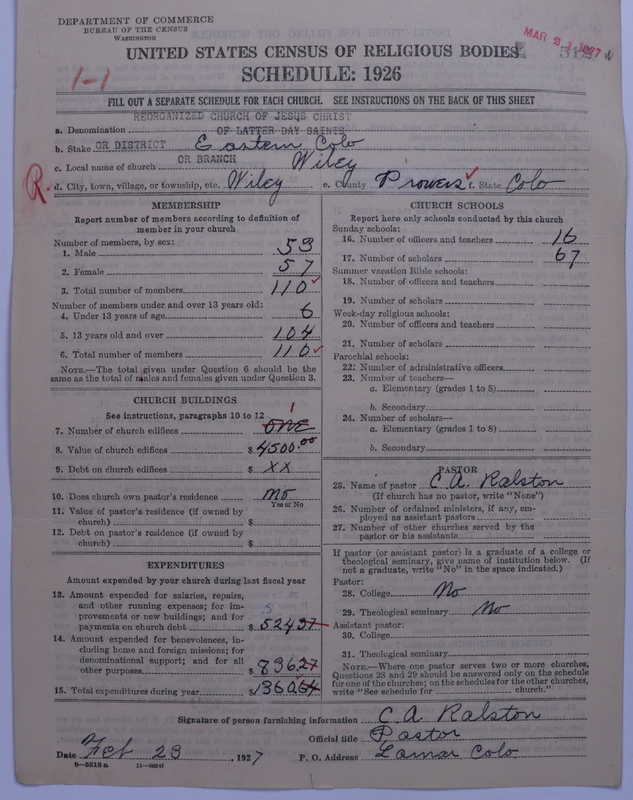 DEPARTMENT OF COMMERCE
BUREAU OF THE CENSUS
WASHINGTON
MAR 21 1927
UNITED STATES CENSUS OF RELIGIOUS BODIES
1-1
SCHEDULE: 1926
FILL OUT A SEPARATE SCHEDULE FOR EACH CHURCH. SEE INSTRUCTIONS ON THE BACK OF THIS SHEET
REORGANIZED CHURCH OF JESUS CHRIST
a. Denomination OF LATTER DAY SAINTS
b. Stake OR DISTRICT Eastern Colo
c. Local name of church OR BRANCH Wiley
R. d. City, town, village, or township, etc. Wiley e. County Prowers f. State Colo
MEMBERSHIP
Report number of members according to definition of member in your church
Number of members, by sex:
1. Male 53
2. Female 57
3. Total number of members 110
Number of members under and over 13 years old:
4. Under 13 years of age 6
5. 13 years old and over 104
6. Total number of members 110
NOTE.—The total given under Question 6 should be
same as the total of males and females given under Question 3.
CHURCH BUILDINGS
See instructions, paragraphs 10 to 12
1
7. Number of church edifices ONE
8. Value of church edifices $ 4500.00
9. Debt on church edifices $ XX
10. Does church own pastor's residence No
Yes or No
11. Value of pastor's residence (if owned by
church) $
12. Debt on pastor's residence (if owned by
church) $
EXPENDITURES
Amount expended by your church during last fiscal year
13. Amount expended for salaries, repairs,
and other running expenses; for im-
provements or new buildings; and for
payments on church debt $ 52437
14. Amount expended for benevolences, in-
cluding home and foreign missions; for
denominational support; and for all
other purposes $ 83627
15. Total expenditures during year $ 136064
CHURCH SCHOOLS
Report here only schools conducted by this church
Sunday schools:
16. Number of officers and teachers 16
17. Number of scholars 67
Summer vacation Bible schools:
18. Number of officers and teachers
19. Number of scholars
Week-day religious schools:
20. Number of officers and teachers
21. Number of scholars
Parochial schools:
22. Number of administrative officers
23. Number of teachers—
a. Elementary (grades 1 to 8)
b. Secondary
24. Number of scholars—
a. Elementary (grades 1 to 8)
b. Secondary
PASTOR
25. Name of pastor C A. Ralston
(If church has no pastor, write "None")
26. Number of ordained ministers, if any, em-
ployed as assistant pastors
27. Number of other churches served by the
pastor or his assistants
If pastor (or assistant pastor) is a graduate of a college or
theological seminary, give name of institution below. (If
not a graduate, write "No" in the space indicated.)
Pastor:
28. College No
29. Theological seminary No
Assistant pastor:
30. College
31. Theological seminary
NOTE.—Where one pastor serves two or more churches,
Questions 28 and 29 should be answered only on the schedule
for one of the churches; on the schedules for the other churches,
write "See schedule for church."
Signature of person furnishing information C. A. Ralston
Official title Pastor
Date Feb 23, 1927 P. O. Address Lamar Colo.
8—5518a 11—9054f